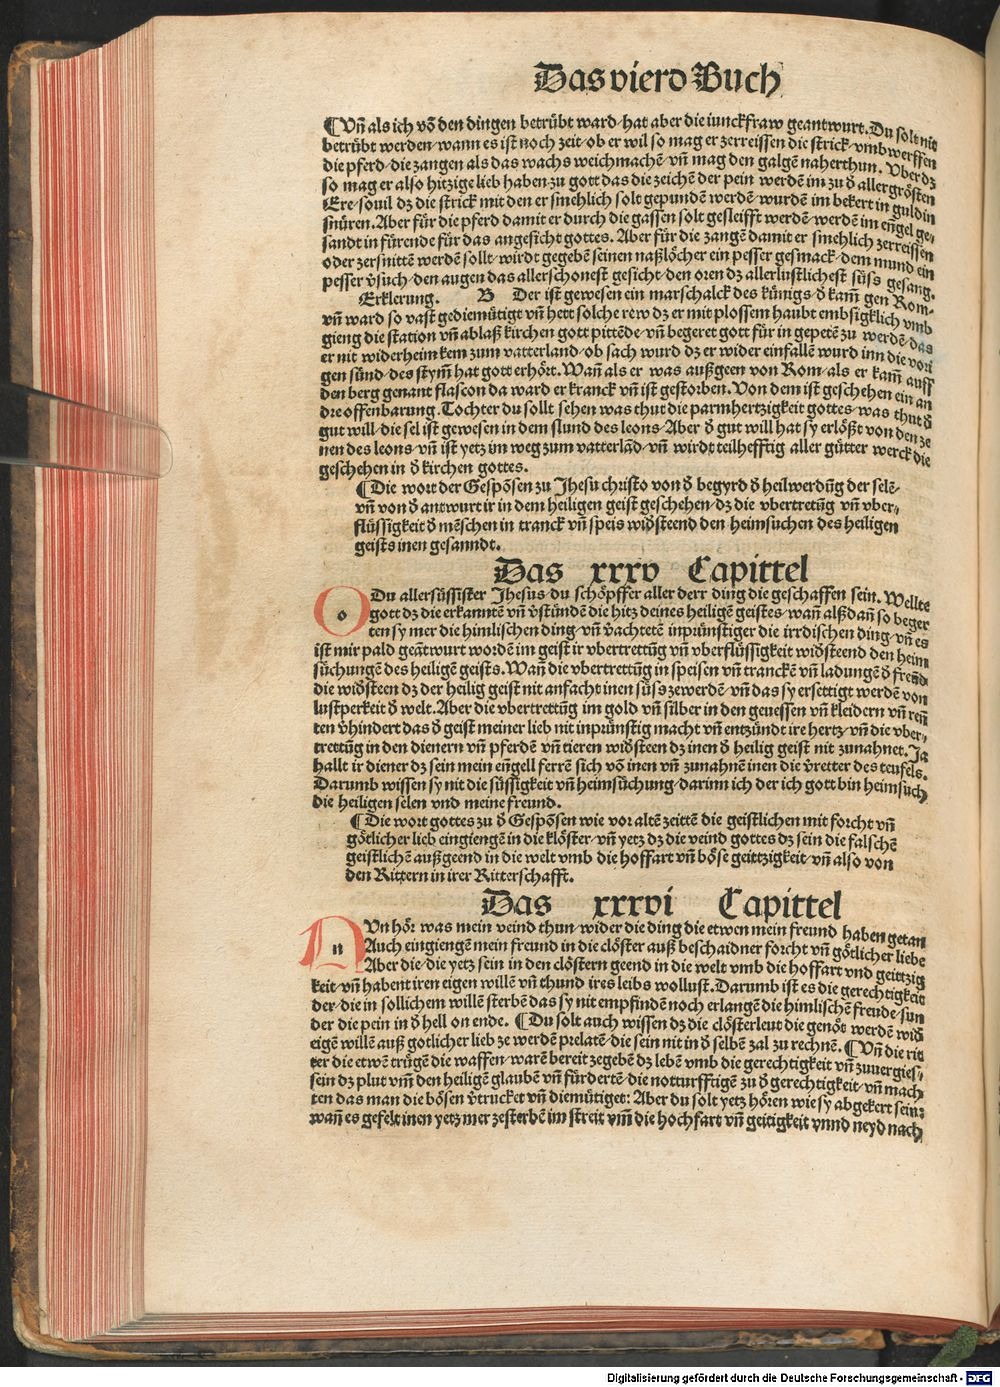 Das vierd Buch
¶ Vñ als ich võ den dingen betrübt ward/ hat aber die iunckfraw geantwurt. Du solt nit
betrübt werden/ wann es ist noch zeit/ ob er wil so mag er zerreissen die strick/ vmb werffen
die pferd/ die zangen als das wachs weichmachẽ/ vñ mag den galgẽ naherthun. Vber dz
so mag er also hitzige lieb haben zu gott das die zeichẽ der pein werdẽ im zu d̕ aller grösten
Ere/ souil dz die strick mit den er smehlich solt gepunden werdẽ/ wurdẽ im bekert in guldin
snüren. Aber für die pferd damit er durch die gassen solt gesleifft werdẽ/ werdẽ im eñgel ge⸗
sandt in fürende für das angesicht gottes. Aber für die zangẽ damit er smehlich zerreissen
oder zersnittẽ werdẽ sollt/ wirdt gegebẽ seinen naßlöcher ein pesser gesmack/ dem mund ein
pesser v̕such/ den augen das allerschonest gesicht/ den oren dz allerlustlichest süss gesang.
Erklerung. B Der ist gewesen ein marschalck des künigs/ d̕ kam̃ gen Rom⸗
vñ ward so vast gediemütigt vñ hett solche rew dz er mit plossem haubt embsigklich vmb
gieng die station vñ ablaß kirchen gott pittẽde/ vñ begeret gott für in gepetẽ zu werdẽ/ das
er nit widerheim kem zum vatterland/ ob sach wurd dz er wider einfallẽ wurd inn die vori
gen sünd/ des stym̃ hat gott erhört. Wañ als er was außgeen von Rom/ als er kam̃ auff
den berg genant flascon da ward er kranck vñ ist gestorben. Von dem ist geschehen ein an
dre offenbarung. Tochter du sollt sehen was thut die parmhertzigkeit gottes/ was thut d̕
gut will/ die sel ist gewesen in dem slund des leons/ Aber d̕ gut will hat sy erlößt von den ze
nen des leons/ vñ ist yetz im weg zum vatterlãd/ vñ wirdt teilhefftig aller gütter werck die
geschehen in d̕ kirchen gottes.
¶ Die wort der Gespõsen zu Jhesu christo von d̕ begyrd d̕ heilwerdũg der selẽ⸗
vñ von d̕ antwurt ir in dem heiligen geist geschehen/ dz die vbertretũg vñ vber⸗
flüssigkeit d̕ mẽschen in tranck vñ speis wid̕steend den heimsuchen des heiligen
geists inen gesanndt.
Das xxxv Capittel
O Du allersüssister Jhesus/ du schöpffer aller derr ding die geschaffen sein. Wellte
gott dz die erkanntẽ vñ v̕stündẽ die hitz deines heiligẽ geistes/ wañ alßdañ so beger
ten sy mer die himlischen ding/ vñ v̕achtetẽ inprünstiger die irrdischen ding/ vñ es
ist mir pald geãtwurt wordẽ im geist ir vbertrettũg vñ vberflüssigkeit wid̕steend den heim
süchungẽ des heiligẽ geists. Wañ die vbertrettũg in speisen vñ tranckẽ vñ ladungẽ d̕ freũd
die wid̕steen dz der heilig geist nit anfacht inen süss zewerdẽ/ vñ das sy ersettigt werdẽ von
lustperkeit d̕ welt. Aber die vbertrettũg im gold vñ silber in den geuessen vñ kleidern vñ reñ
ten v̕hindert das d̕ geist meiner lieb nit inprünstig macht vñ entzündt ire hertz/ vñ die vber⸗
trettũg in den dienern vñ pferdẽ vñ tieren wid̕steen dz inen d̕ heilig geist nit zunahnet. Ja
hallt ir diener dz sein mein eñgell ferrẽ sich võ inen vñ zunahnẽ inen die v̕retter des teufels.
Darumb wissen sy nit die süssigkeit vñ heimsüchung/ darinn ich der ich gott bin heimsuch
die heiligen selen vnd meine freund.
¶ Die wort gottes zu d̕ Gespõsen wie vor altẽ zeittẽ die geistlichen mit forcht vñ
götlicher lieb eingiengẽ in die klöster/ vñ yetz dz die veind gottes dz sein die falschẽ
geistlichẽ außgeend in die welt vmb die hoffart vñ böse geittzigkeit/ vñ also von
den Rittern in irer Ritterschafft.
Das xxxvi Capittel
N Vn hör was mein veind thun/ wider die ding die etwen mein freund haben getan
Auch eingiengẽ mein freund in die clöster auß beschaidner forcht vñ götlicher liebe
Aber die/ die yetz sein in den clöstern geend in die welt vmb die hoffart vnd geittzig
keit/ vñ habent iren eigen willẽ vñ thund ires leibs wollust. Darumb ist es die gerechtigkeit
der/ die in sollichem willẽ sterbẽ das sy nit empfindẽ noch erlangẽ die himlischẽ freude/ sun
der die pein in d̕ hell on ende. ¶ Du solt auch wissen dz die clösterleut die genöt werdẽ wid̕
eigẽ willẽ auß gotlicher lieb ze werdẽ prelatẽ/ die sein nit in d̕ selbẽ zal zu rechnẽ. ¶ Vñ die rit
ter die etwẽ trügẽ die waffen/ warẽ bereit zegebẽ dz lebẽ vmb die gerechtigkeit vñ zuuergies⸗
sein dz plut vm̃ den heiligẽ glaubẽ vñ fürdertẽ/ die notturfftigẽ zu d̕ gerechtigkeit/ vñ mach
ten das man die bösen v̕trucket vñ diemütiget: Aber du solt yetz hören wie sy abgekert sein:
wañ es gefelt inen yetz mer zesterbẽ im streit vm̃ die hochfart vñ geitigkeit vnnd neyd nach
Digitalisierung gefördert durch die Deutsche Forschungsgemeinschaft - DFG